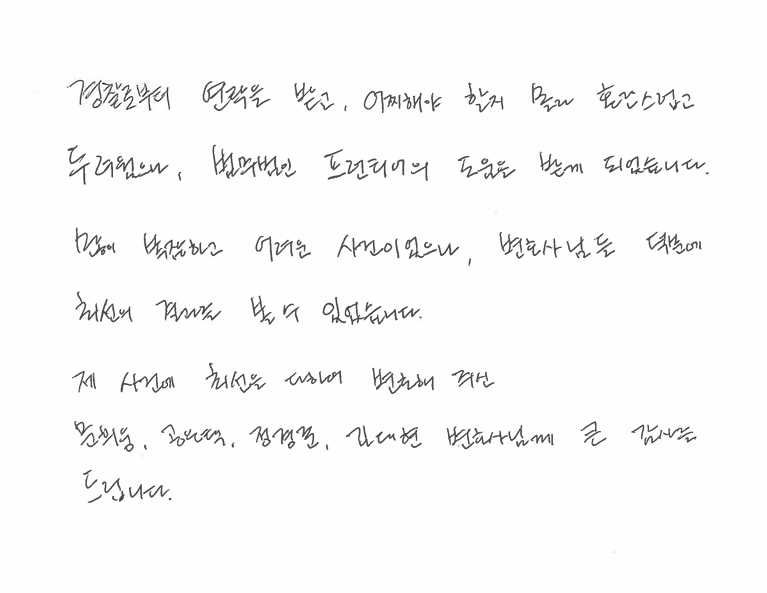 경찰로부터 연락을 받고, 어찌해야 할지 몰라 혼란스럽고
두려웠으나, 법무법인 프런티어의 도움을 받게 되었습니다.
많이 복잡하고 어려운 사건이었으나, 변호사님들 덕분에
최선의 결과를 볼 수 있었습니다.
제 사건에 최선을 다하여 변호해 주신
정경준, 김대현 변호사님께 큰 감사를
드립니다.